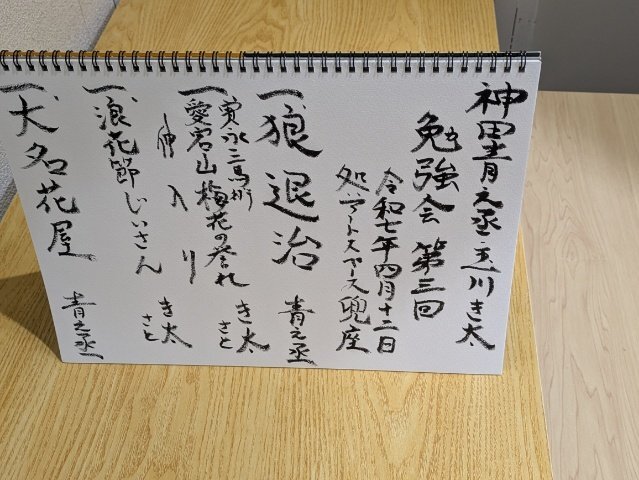 神田青之丞・玉川き太
勉強会 第三回
令和七年四月十二日
処・アートスペース兜座
一、狼退治 青之丞
一、寛永三馬術
愛宕山 梅花の誉れ き太
さと
仲入り
一、浪花節じいさん き太
さと
一、大名花屋 青之丞